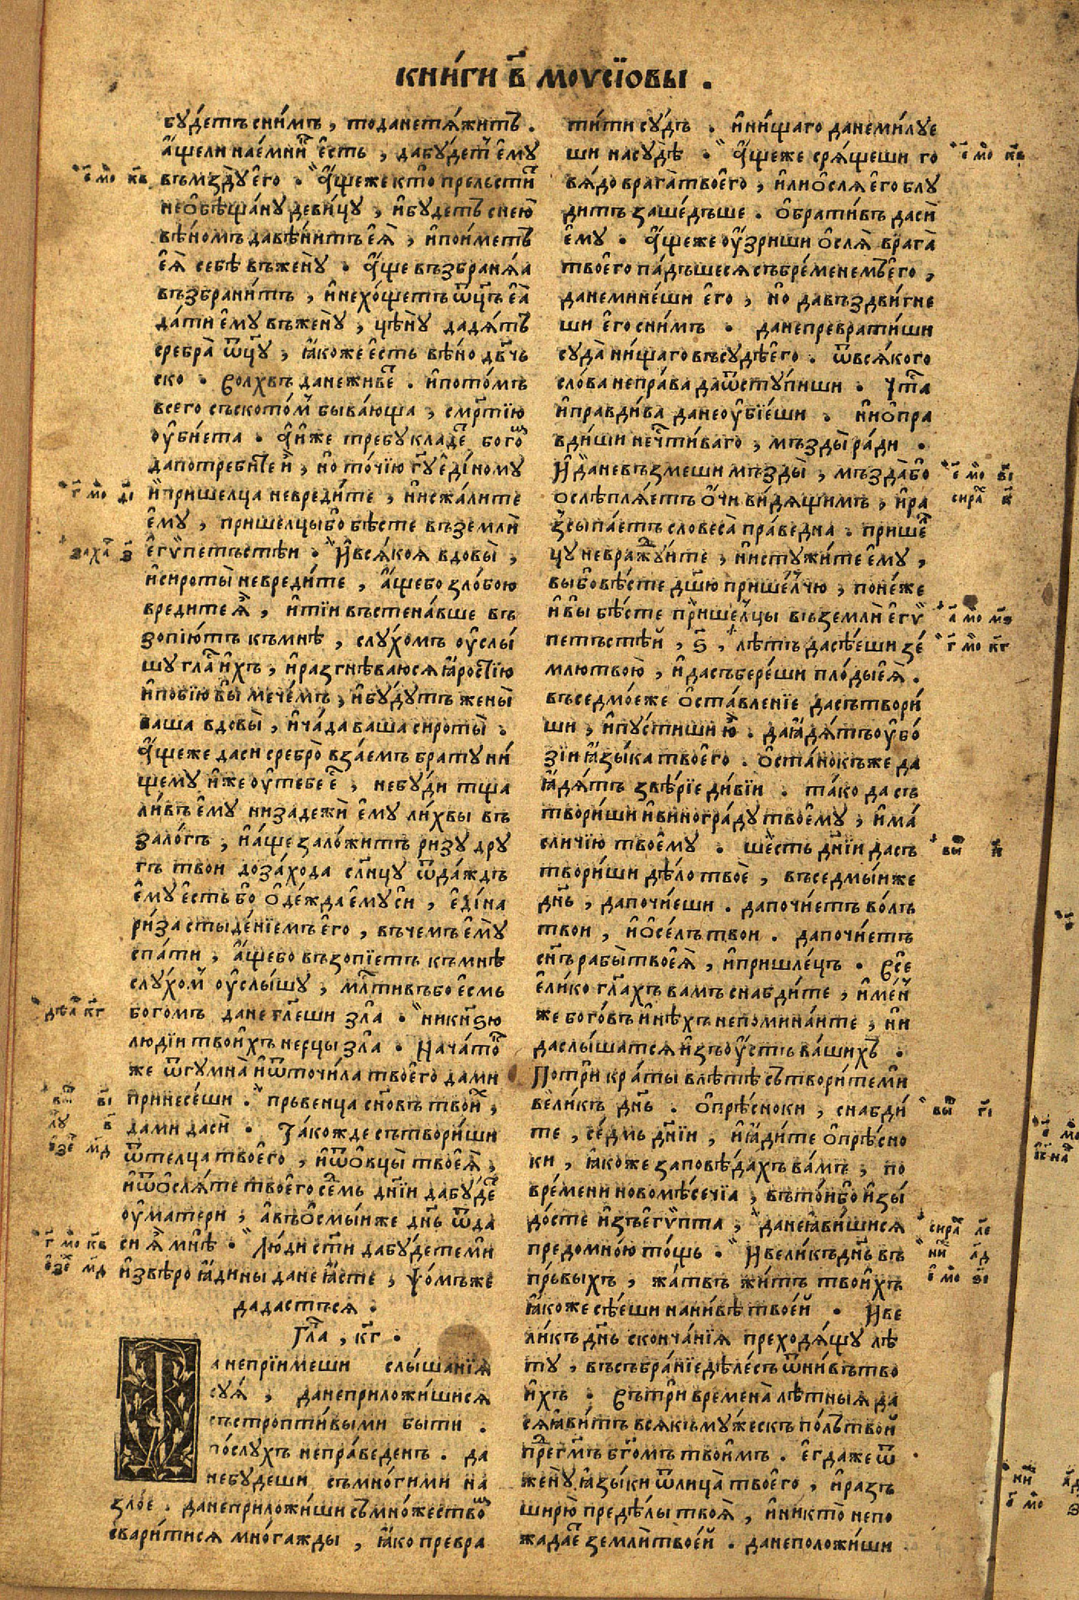 книги в҃ моусїовы .
бу́детъ сни́мъ , тоданетѧ́житъ .
а҆щели нае́мни є҆сть , дабу́дет є҆му
въмзду є҆го . а҆щеже кто прельсти
необѣща́ну деви́цу , и҆бу́детъ снею
вѣ́номъ давѣ́нитъ є҆ѧ̀ , и҆пои́метъ
є҆ѧ̀ себѣ въжену̀ . а҆ще възбранѧ́ѧ
възбрани́тъ , и҆нехо́щетъ ѿц҃ъ є҆ѧ̀
да́ти є҆му въжену̀ , цѣ́ну дадѧ́тъ
сребра̀ ѿц҃у , ꙗ҆коже є҆сть вѣ́но дв҃чь
ско . волхвъ данеживе . и҆пото́мъ
всего съско́том быва́юща , сме́ртїю
оу҆бїета . а҆и҆же требу кладе бого
дапотреби́те и҆ , но то́чїю гд҃у є҆ди́ному
и҆пришелца невреди́те , и҆несжа́лите
є҆му , прише́лцы бо бѣ́сте въземлѝ
є҆гѵ́петъстѣи . и҆всѧ́коѧ вдовы̀ ,
и҆сироты̀ невреди́те , а҆щебо зло́бою
вредите ѧ҆̀ , и҆тїи въстена́вше въ
зопїю́тъ къмнѣ , слу́хомъ оу҆слы́
шу гла и҆хъ , и҆разгнѣ́ваюсѧ ꙗ҆ростїю
и҆побїю вы мече́мъ , и҆бу́дутъ жены̀
ваша вдовы̀ , и҆ча́да ваша сироты̀ .
а҆щеже даси сребро̀ вза́емъ брату ни́
щему и҆же оу҆тебе є҆ , небу́ди тща
ли́въ є҆му низадежѝ є҆му ли́хвы въ
зало́гъ , и҆а҆ще зало́житъ ри́зу дру
гъ твои доза́хода сл҃нцу ѿда́ждь
є҆му є҆сть бо ѻ҆де́жда є҆му си , є҆ди́на
ри́за стыде́нїемъ є҆го , въчемъ є҆му
спа́ти , а҆щебо възопїетъ къмнѣ
слу́хом оу҆слы́шу , млⷭ҇тивъ бо є҆смь
богомъ дане гл҃еши зла . никнѧ́зю
люді́и твои́хъ нерцы зла . нача́то
же ѿгумна̀ и҆ѿточи́ла твоего̀ дами
принесе́ши . прьвенца сн҃овъ твои ,
дами дасѝ . та́кожде сътвори́ши
ѿтелца твоего̀ , и҆ѿѻ҆вцы̀ твоеѧ̀ ,
и҆ѿѻ҆слѧ́те твоего се́мь дн҃їи дабу́де
оу҆ма́тери , а҆въѻ҆смы́иже дн҃ь ѿда
си ѧ҆̀ мнѣ . лю́ди ст҃и дабу́детеми
и҆звѣро ꙗ҆дины дане ꙗ҆сте , псо́мъже
дадастьсѧ .
Гла , кг҃ .
а непрїи́меши слы́шанїѧ
суѧ̀ , данеприложи́шисѧ
състропти́выми быти .
по́слухъ непра́веденъ . да
небу́деши съмно́гими на
зло́е . данеприложи́ши съмно́жество
сварити́сѧ мно́гажды , ꙗ҆ко превра
ти́ти су́дъ . и҆ни́щаго данеми́луе
ши насу́дѣ . а҆щеже срѧ́щеши го
вѧ́до врага̀ твоего̀ , и҆лиѻ҆слѧ̀ є҆го блу
дитъ заше́дъше . ѻ҆брати́въ дасѝ
є҆му . а҆щеже оу҆́зриши ѻ҆слѧ̀ врага̀
твоего па́дъшесѧ съ бре́менемъ є҆го ,
данемине́ши є҆го , но давъздви́гне
ши є҆го сни́мъ . данепревра́тиши
суда̀ ни́щаго въсудѣ є҆го . ѿвсѧ́кого
сло́ва непра́ва даѿступи́ши . чⷭ҇та
и҆пра́вдива данеоу҆бїе́ши . и҆неѻ҆пра
вди́ши нечⷭ҇ти́ваго , мъзды̀ ра́ди .
и҆ даневъзмеши мъзды̀ , мъзда̀ бо
ѻ҆слѣплѧ́етъ ѻ҆́чи ви́дѧщимъ , и҆ра
зсыпа́етъ словеса̀ пра́ведна . прише
цу невражду́ите , и҆нистужи́те є҆му ,
вы бо вѣсте дш҃ю прише́лчю , поне́же
и҆ вы бѣ́сте прише́лцы въземлѝ є҆гѵ́
петъстѣй , ѕ҃ , лѣ́тъ дасѣ́еши зе́
млю твою̀ , и҆дасъбере́ши плоды̀ є҆ѧ̀ .
въседмо́еже ѻ҆ставле́нїе дасътвори́
ши , и҆пусти́ши ю҆̀ . даꙗ҆дѧ́тъ оу҆бо́
зїи ꙗ҆зы́ка твоего . ѻ҆ста́нокъже да
ꙗ҆дѧ́тъ звѣ́рїе ди́вїи . та́ко да съ
твори́ши и҆виногра́ду твоему , и҆ма́
сличїю твоему . ше́сть дн҃їи дасъ
твори́ши дѣ́ло твоѐ , въседмы́иже
дн҃ь , дапочїе́ши . дапочїетъ во́лъ
твои , и҆ѻ҆се́лъ твои . дапочїетъ
сн҃ъ рабы̀ твоеѧ̀ , и҆прише́лецъ . все
є҆ли́ко гл҃ахъ вамъ снабди́те , и҆ме́н
же бого́въ и҆нѣхъ непомина́ите , ни
даслы́шатсѧ и҆зъоу҆стъ ва́шихъ .
По три кра́ты влѣ́тѣ сътвори́теми
вели́къ дн҃ь . ѻ҆прѣсноки , снабди́
те , се́дмь дн҃їи , и҆ ꙗ҆ди́те ѻ҆прѣсно
ки , ꙗ҆коже заповѣ́дахъ ва́мъ , по
вре́мени новомѣ́сечїа , въто́ибо и҆зы́
досте и҆зъегѵ́пта , данеꙗ҆ви́шисѧ
предомно́ю то́щь . и҆вели́къ дн҃ь въ
пр́выхъ , жа́твъ жи́тъ твои́хъ
ꙗ҆коже сѣ́еши нани́вѣ твоей . и҆ве
ли́къ дн҃ь сконча́нїѧ преходѧ́щу лѣ
ту , въсъбра́нїе дѣ́лесъ ѿни́въ тво
и҆хъ . въ три времена̀ лѣ́тныѧ да
сѧꙗ҆ви́тъ всѧ́къ му́жескъ по́лъ твой
пре́гдмъ бг҃омъ твои́мъ . є҆гда́же ѿ
жену̀ ꙗ҆зы́ки ѿлица̀ твоего , и҆разъ
ширю̀ преде́лы твоѧ̀ , и҆никто́ непо
жада́е землѝ твоей . данеположи́ши